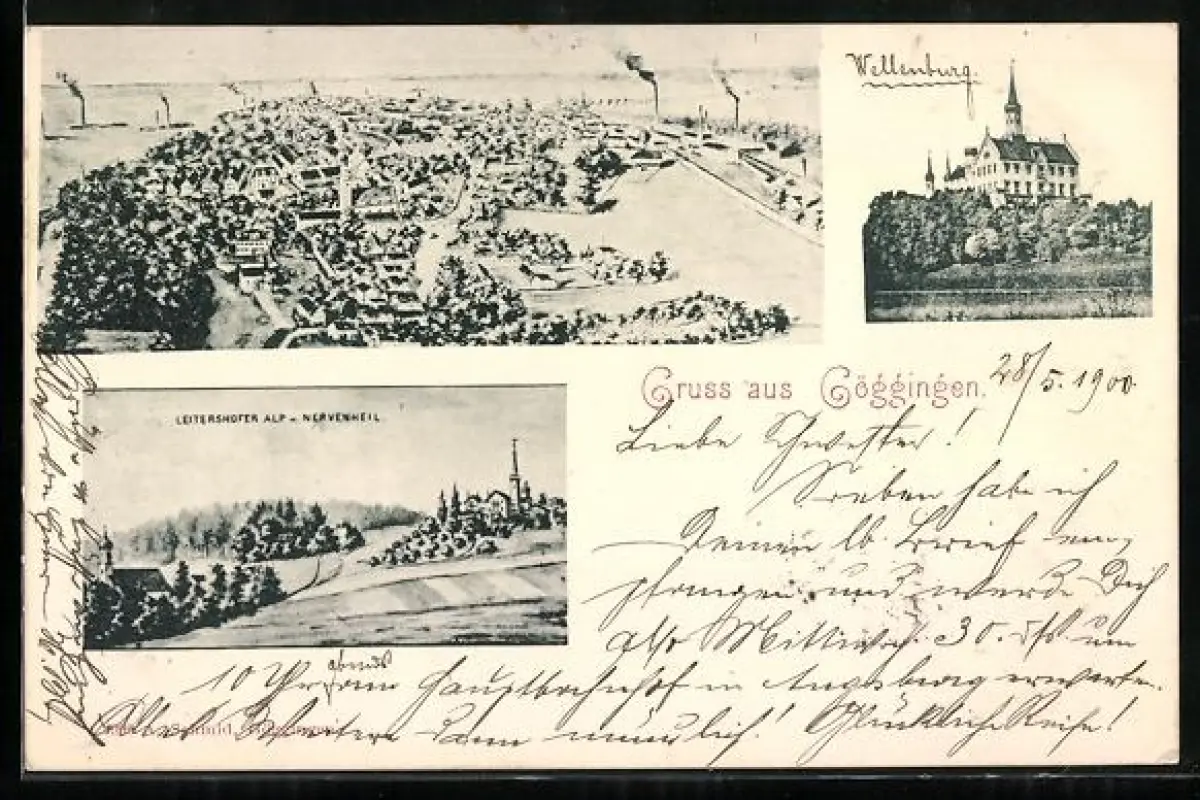 Wellenburg.
LEITERSHOFER ALP u. NERVENHEIL
Gruss aus Göggingen.
28/5. 1900
Liebe Schwester!
Soeben habe ich
Deinen lb. Brief em-
pfangen und werde Dich
also Mittwoch. 30. dss. um
10 Uhr abends am Hauptbahnhof in Augsburg erwarten.
Alles Weitere dann mündlich! Glückliche Reise!
Schmid, Göggingen